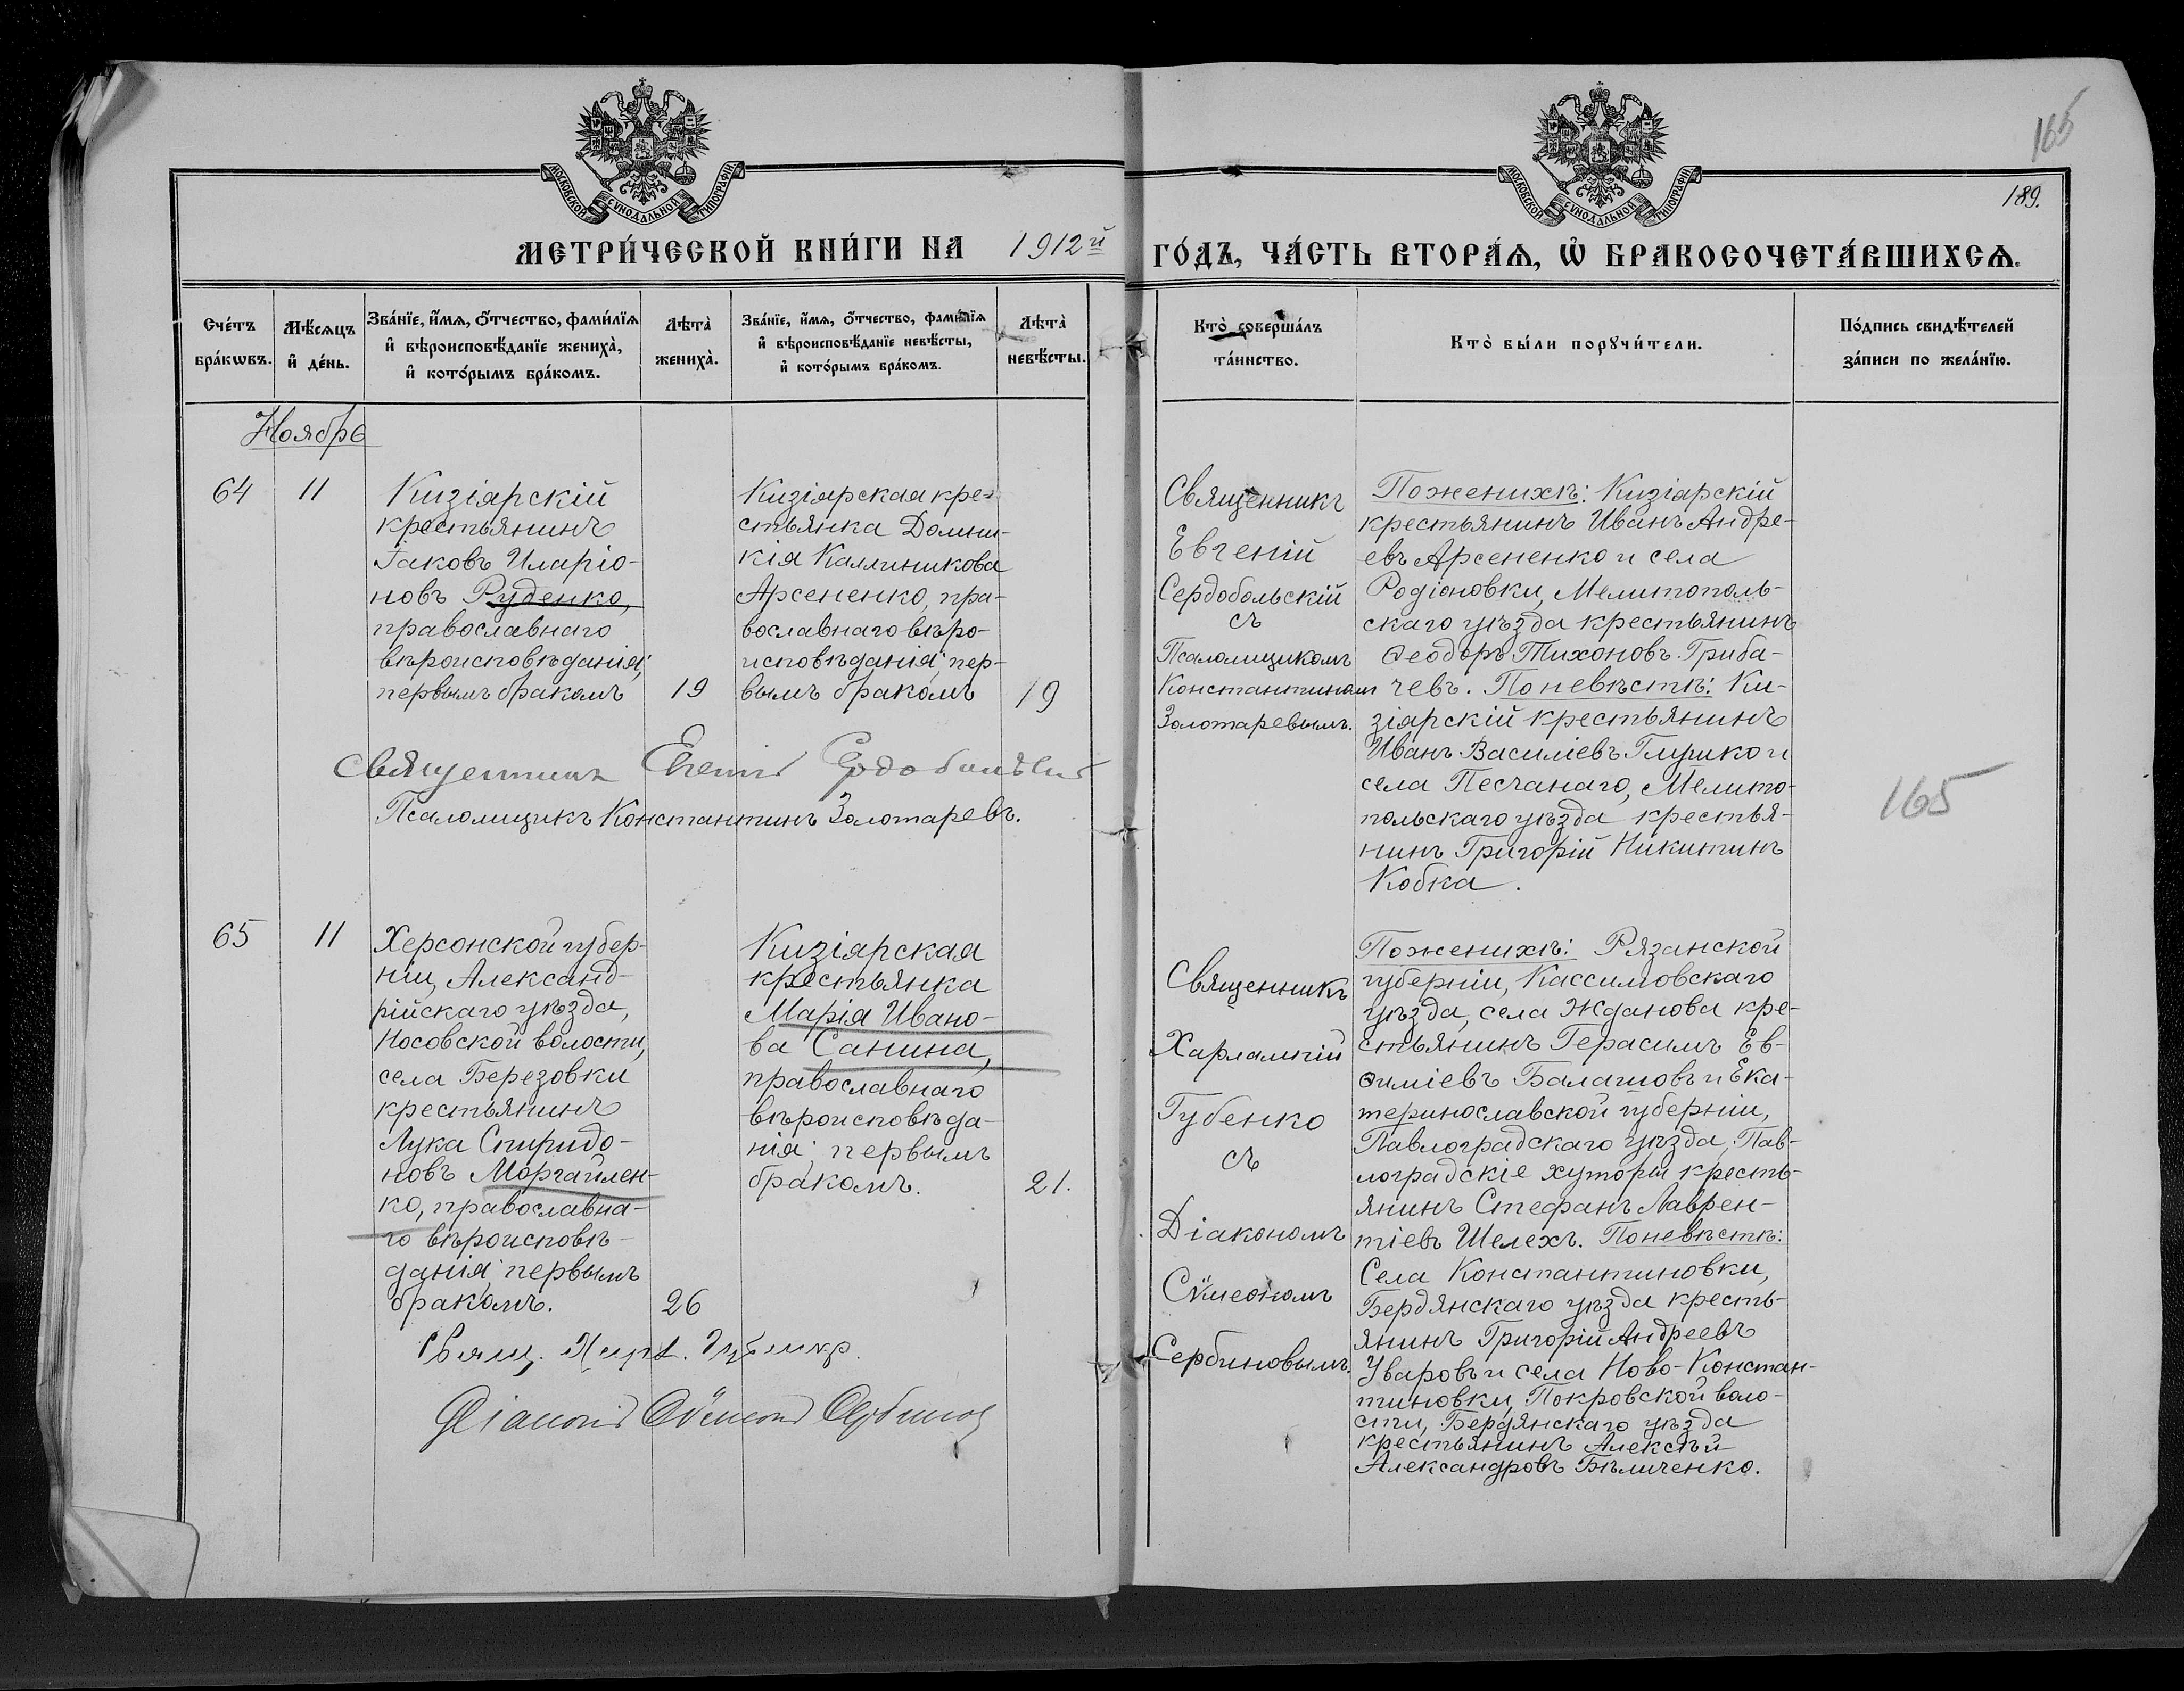 165
189.
МОСКОВСКОЙ СѴНОДАЛЬНОЙ ТИПОГРАФІИ
МОСКОВСКОЙ СѴНОДАЛЬНОЙ ТИПОГРАФІИ
МЕТРИ́ЧЕСКОЙ КНИ́ГИ НА 1912й ГО́ДЪ, ЧА́СТЬ ВТОРА́Ѧ, Ѽ БРАКОСОЧЕТА́ВШИХСѦ.
Сче́тъ
бра́кѡвъ.
Мѣ́сѧцъ
и҆ де́нь.
Зва́нїе, и҆́мѧ, ѻ҆́тчество, фами́лїѧ
и҆ вѣроисповѣ́данїе жениха̀,
и҆ кото́рымъ бра́комъ.
Лѣта̀
жениха̀.
Зва́нїе, и҆́мѧ, ѻ҆́тчество, фами́лїѧ
и҆ вѣроисповѣ́данїе невѣ́сты,
и҆ кото́рымъ бра́комъ.
Лѣта̀
невѣ́сты.
Кто̀ соверша́лъ
та́инство.
Кто̀ бы́ли порꙋчи́тели.
По́дпись свидѣ́телей
за́писи по жела́нїю.
Ноябрь
64
11
Кизіярскій
крестьянинъ
Іаковъ Иларіо-
новъ Руденко,
православнаго
вѣроисповѣданія;
первымъ бракомъ
19
Кизіярская кре-
стьянка Домни-
кія Каллиникова
Арсененко, пра-
вославнаго вѣро-
исповѣданія; пер-
вымъ бракомъ
19
Священникъ
Евгеній
Сердобольскій
съ
Псаломщикомъ
Константиномъ
Золотаревымъ.
По женихѣ: Кизіярскій
крестьянинъ Иванъ Андре-
евъ Арсененко и села
Родіоновки, Мелитополь-
скаго уѣзда крестьянинъ
Ѳеодоръ Тихоновъ Грыба-
чевъ. По невѣстѣ: Ки-
зіярскій крестьянинъ
Иванъ Василіевъ Глушко и
села Песчанаго, Мелито-
польскаго уѣзда крестья-
нинъ Григорій Никитинъ
Кобка.
Священникъ Евгеній Сердобольскій
Псаломщикъ Константинъ Золотаревъ.
165
65
11
Херсонской губер-
ніи, Александ-
рійскаго уѣзда,
Носовской волости,
села Березовки
крестьянинъ
Лука Спиридо-
новъ Моргайлен-
ко, православна-
го вѣроисповѣ-
данія; первымъ
бракомъ.
26
Кизіярская
крестьянка
Марія Ивано-
ва Санина,
православнаго
вѣроисповѣда-
нія; первымъ
бракомъ.
21.
Священникъ
Харлампій
Губенко
съ
Діакономъ
Сѷмеономъ
Сербиновымъ.
По женихѣ: Рязанской
губерніи, Кассимовскаго
уѣзда, села Жданова кре-
стьянинъ Герасимъ Ев-
ѳиміевъ Балашовъ и Ека-
теринославской губерніи,
Павлоградскаго уѣзда, Пав-
лоградскіе хуторы кресть-
янинъ Стефанъ Лаврен-
тіевъ Шелехъ. По невѣстѣ:
Села Константиновки,
Бердянскаго уѣзда кресть-
янинъ Григорій Андреевъ
Уваровъ и села Ново-Констан-
тиновки, Покровской воло-
сти, Бердянскаго уѣзда
крестьянинъ Алексѣй
Александровъ Бѣличенко.
Свящ. Харл. Губенко.
Діаконъ Сѷмеонъ Сербиновъ